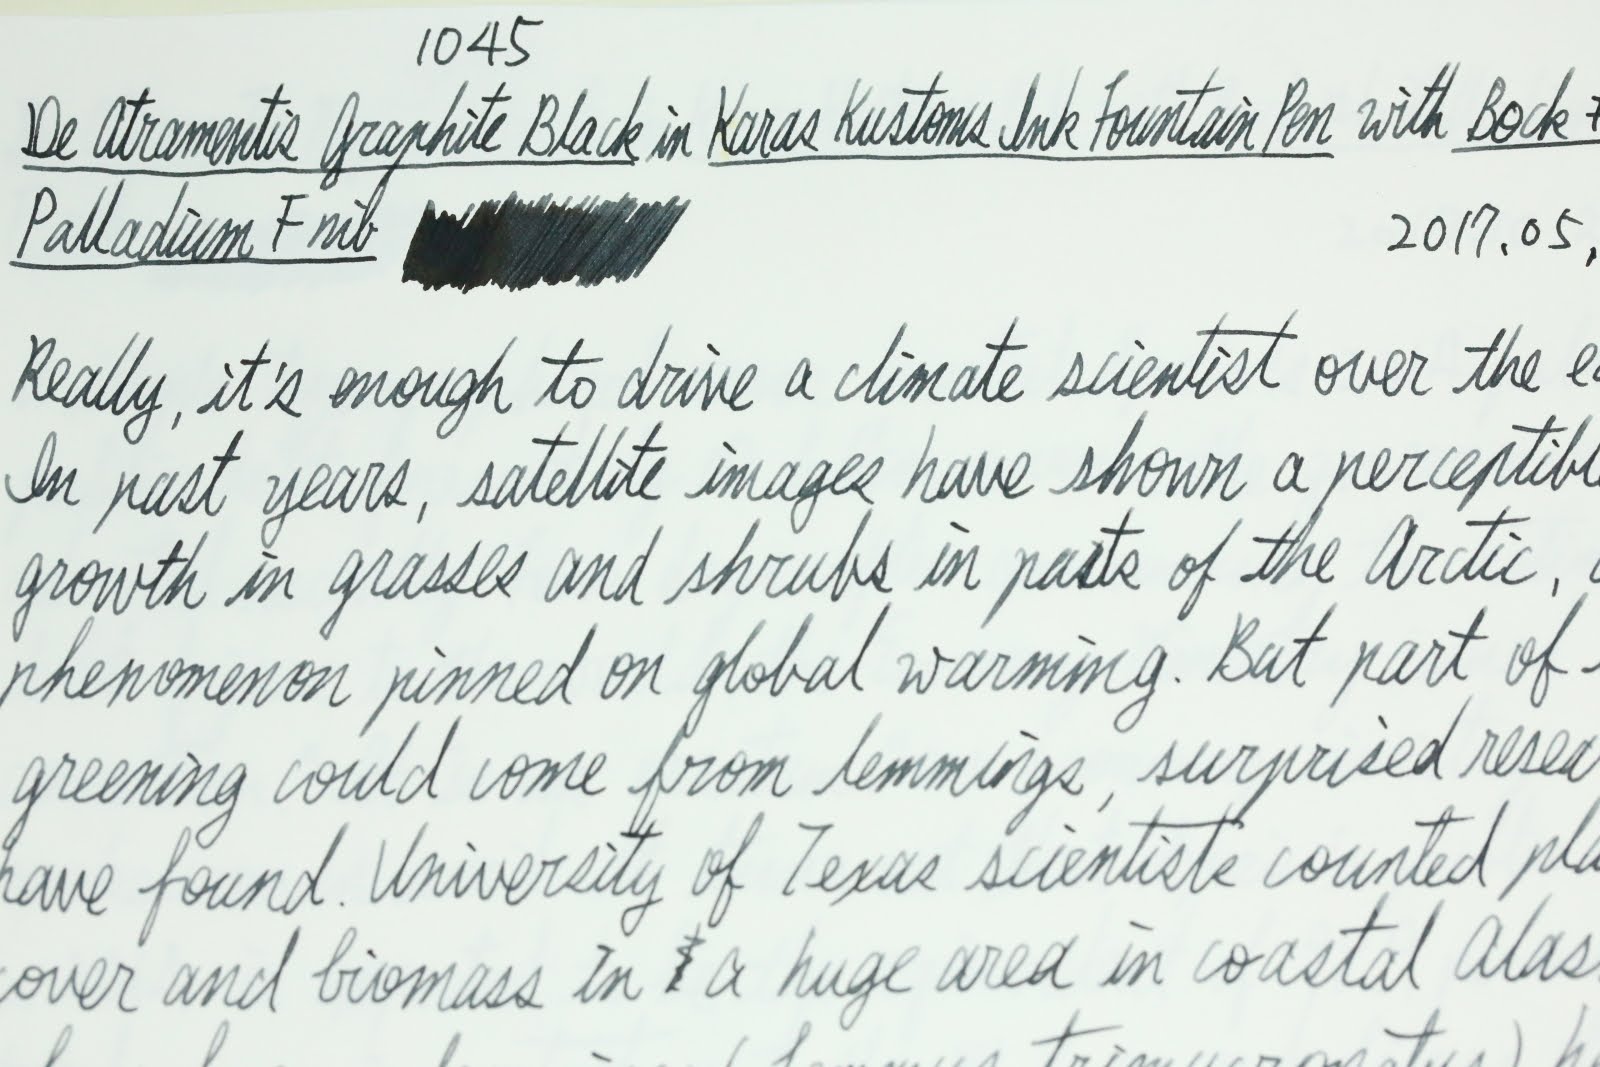 1045
De Atramentis Graphite Black in Karas Kustoms Ink Fountain Pen with Bock
Palladium F nib
2017.05.
Really, it's enough to drive a climate scientist over the
In past years, satellite images have shown a perceptibl
growth in grasses and shrubs in parts of the Arctic,
phenomenon pinned on global warming. But part of
greening could come from lemmings, surprised resea
have found. University of Texas scientists counted pla
cover and biomass in a huge area in coastal Alas
(Lemmus trimucronatus)